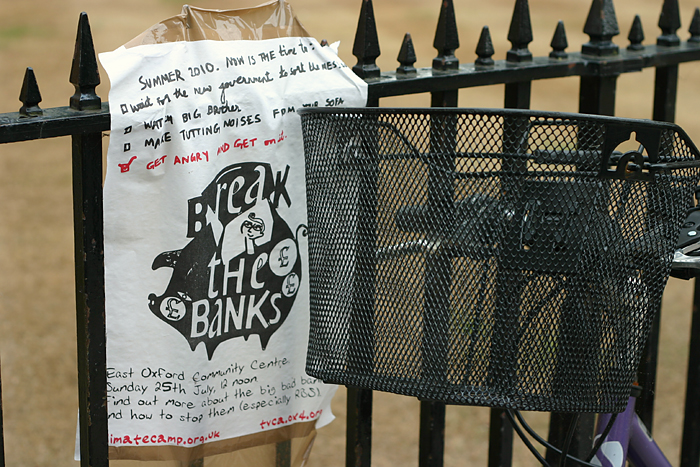 SUMMER 2010. NOW IS THE time to:
wait for the new government to sort the MES...
WATCH BIG BROTHER
MAKE TUTTING NOISES FROM YOUR SOFA
GET ANGRY AND GET on it.
BreaK
THe
BANKS
£
£
£
East Oxford Community Centre
Sunday 25th July, 12 noon
Find out more about the big bad ban
nd how to stop them (especially
imatecamp.org.uk
tvca.ox4.org